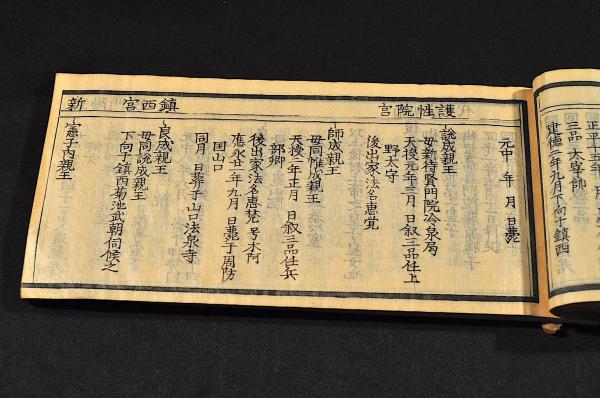 正平十五年
三品 太宰帥
建德二年九月下向于鎮西
護性院宮
元中 年 月 日薨
說成親王
母新待賢門院冷泉局
天授元年三月 日叙三品任上
野太守
後出家法名惠覚
師成親王
母同惟成親王
天授二年正月 日叙三品任兵
部卿
後出家法名惠梵 号木阿
應永廿 年九月 日薨于周防
国山口
同月 日葬于山口法泉寺
鎮西宮
良成親王
母同說成親王
下向于鎮西菊池武朝伺候之
新
憲子内親王